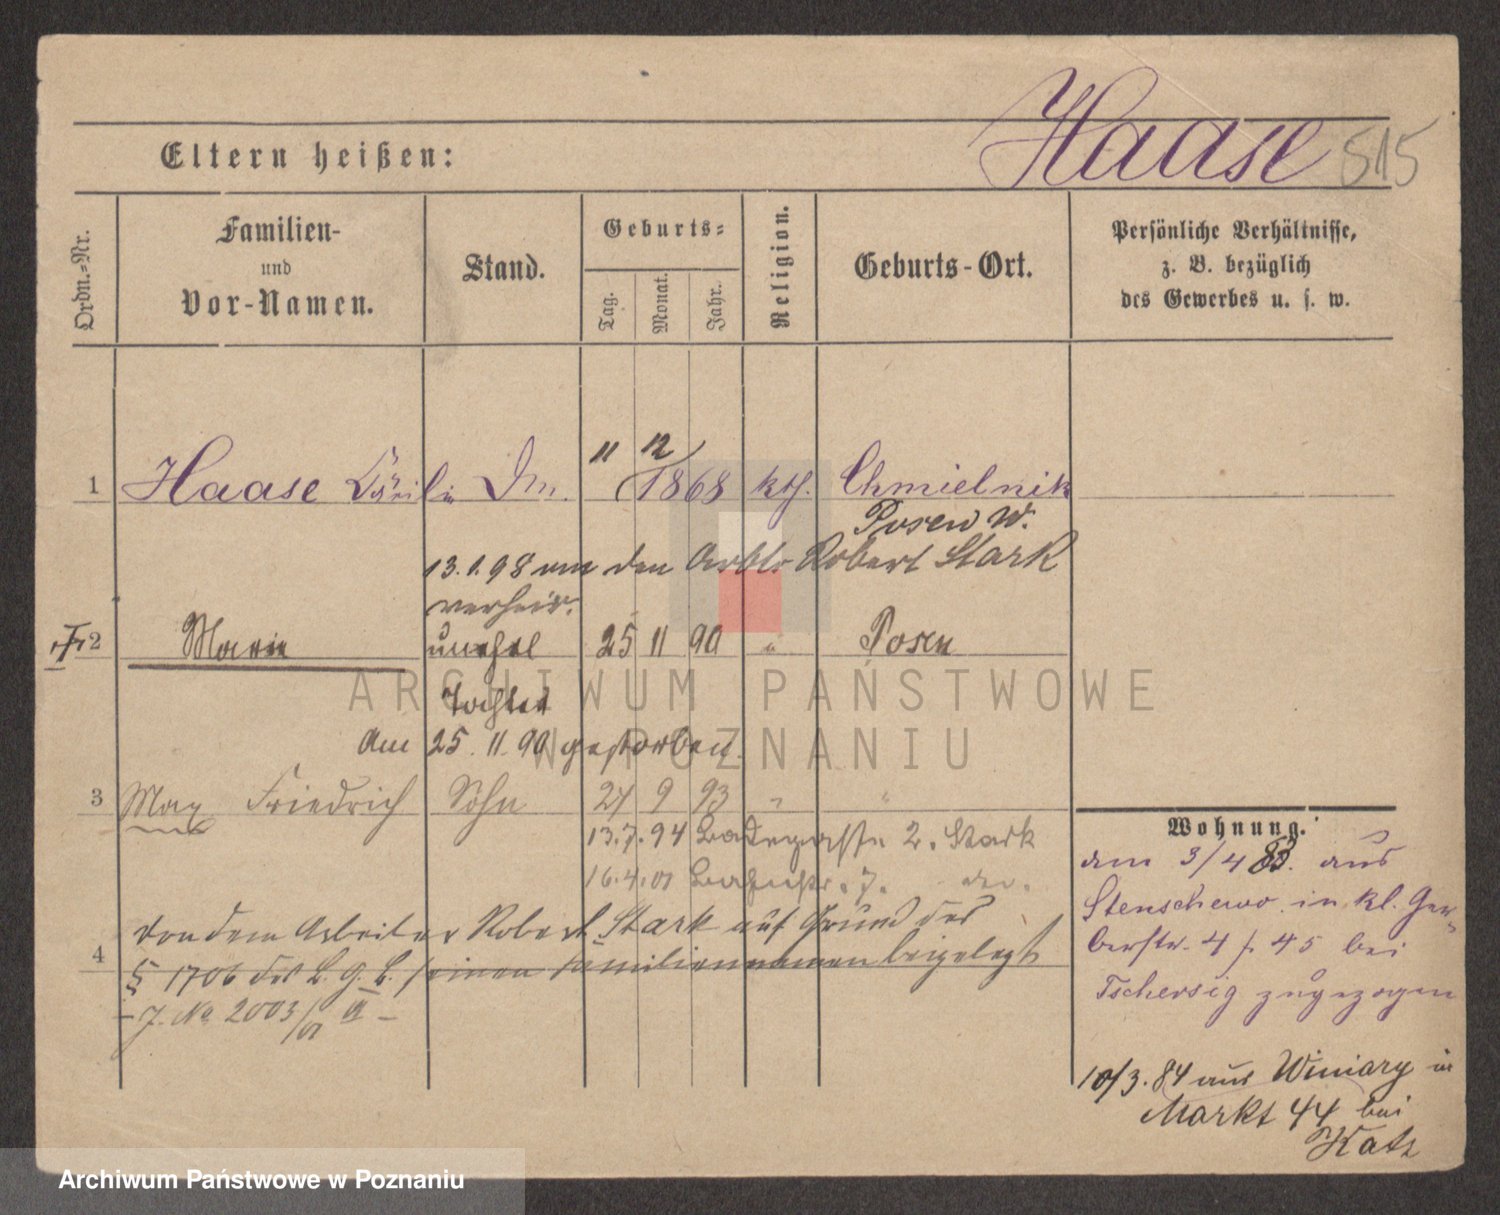 Haase 515
Eltern heißen:
Ordn.-Nr.
Familien-
und
Vor-Namen.
Stand.
Geburts-
Tag.
Monat.
Jahr.
Religion.
Geburts-Ort.
Persönliche Verhältnisse,
z. B. bezüglich
des Gewerbes u. s. w.
11 12
1 Haase 1868 kth. Chmielnik
Posen W.
13.1.98 um den Robert Stark
verheir.
2 Marie unehel 25 11 90 " Posen
Tochter
Am 25. 11. 90 gestorben.
3 Max Friedrich Sohn 27 9 93 " "
13.7.94 2. Stark
16.4.01 7. do.
4 von dem Arbeiter Robert Stark auf Grund des
§ 1706 des B. G. B. seinen Familiennamen beigelegt
J. No 2003/01 III
Wohnung.
am 3/4 83. aus
Stenschewo in kl. Ger-
berstr. 4 p. 45 bei
Tschersig zugezogen
10/3. 84 aus Winiary in
Markt 44 bei
Katz
ARCHIWUM PAŃSTWOWE
W POZNANIU
Archiwum Państwowe w Poznaniu